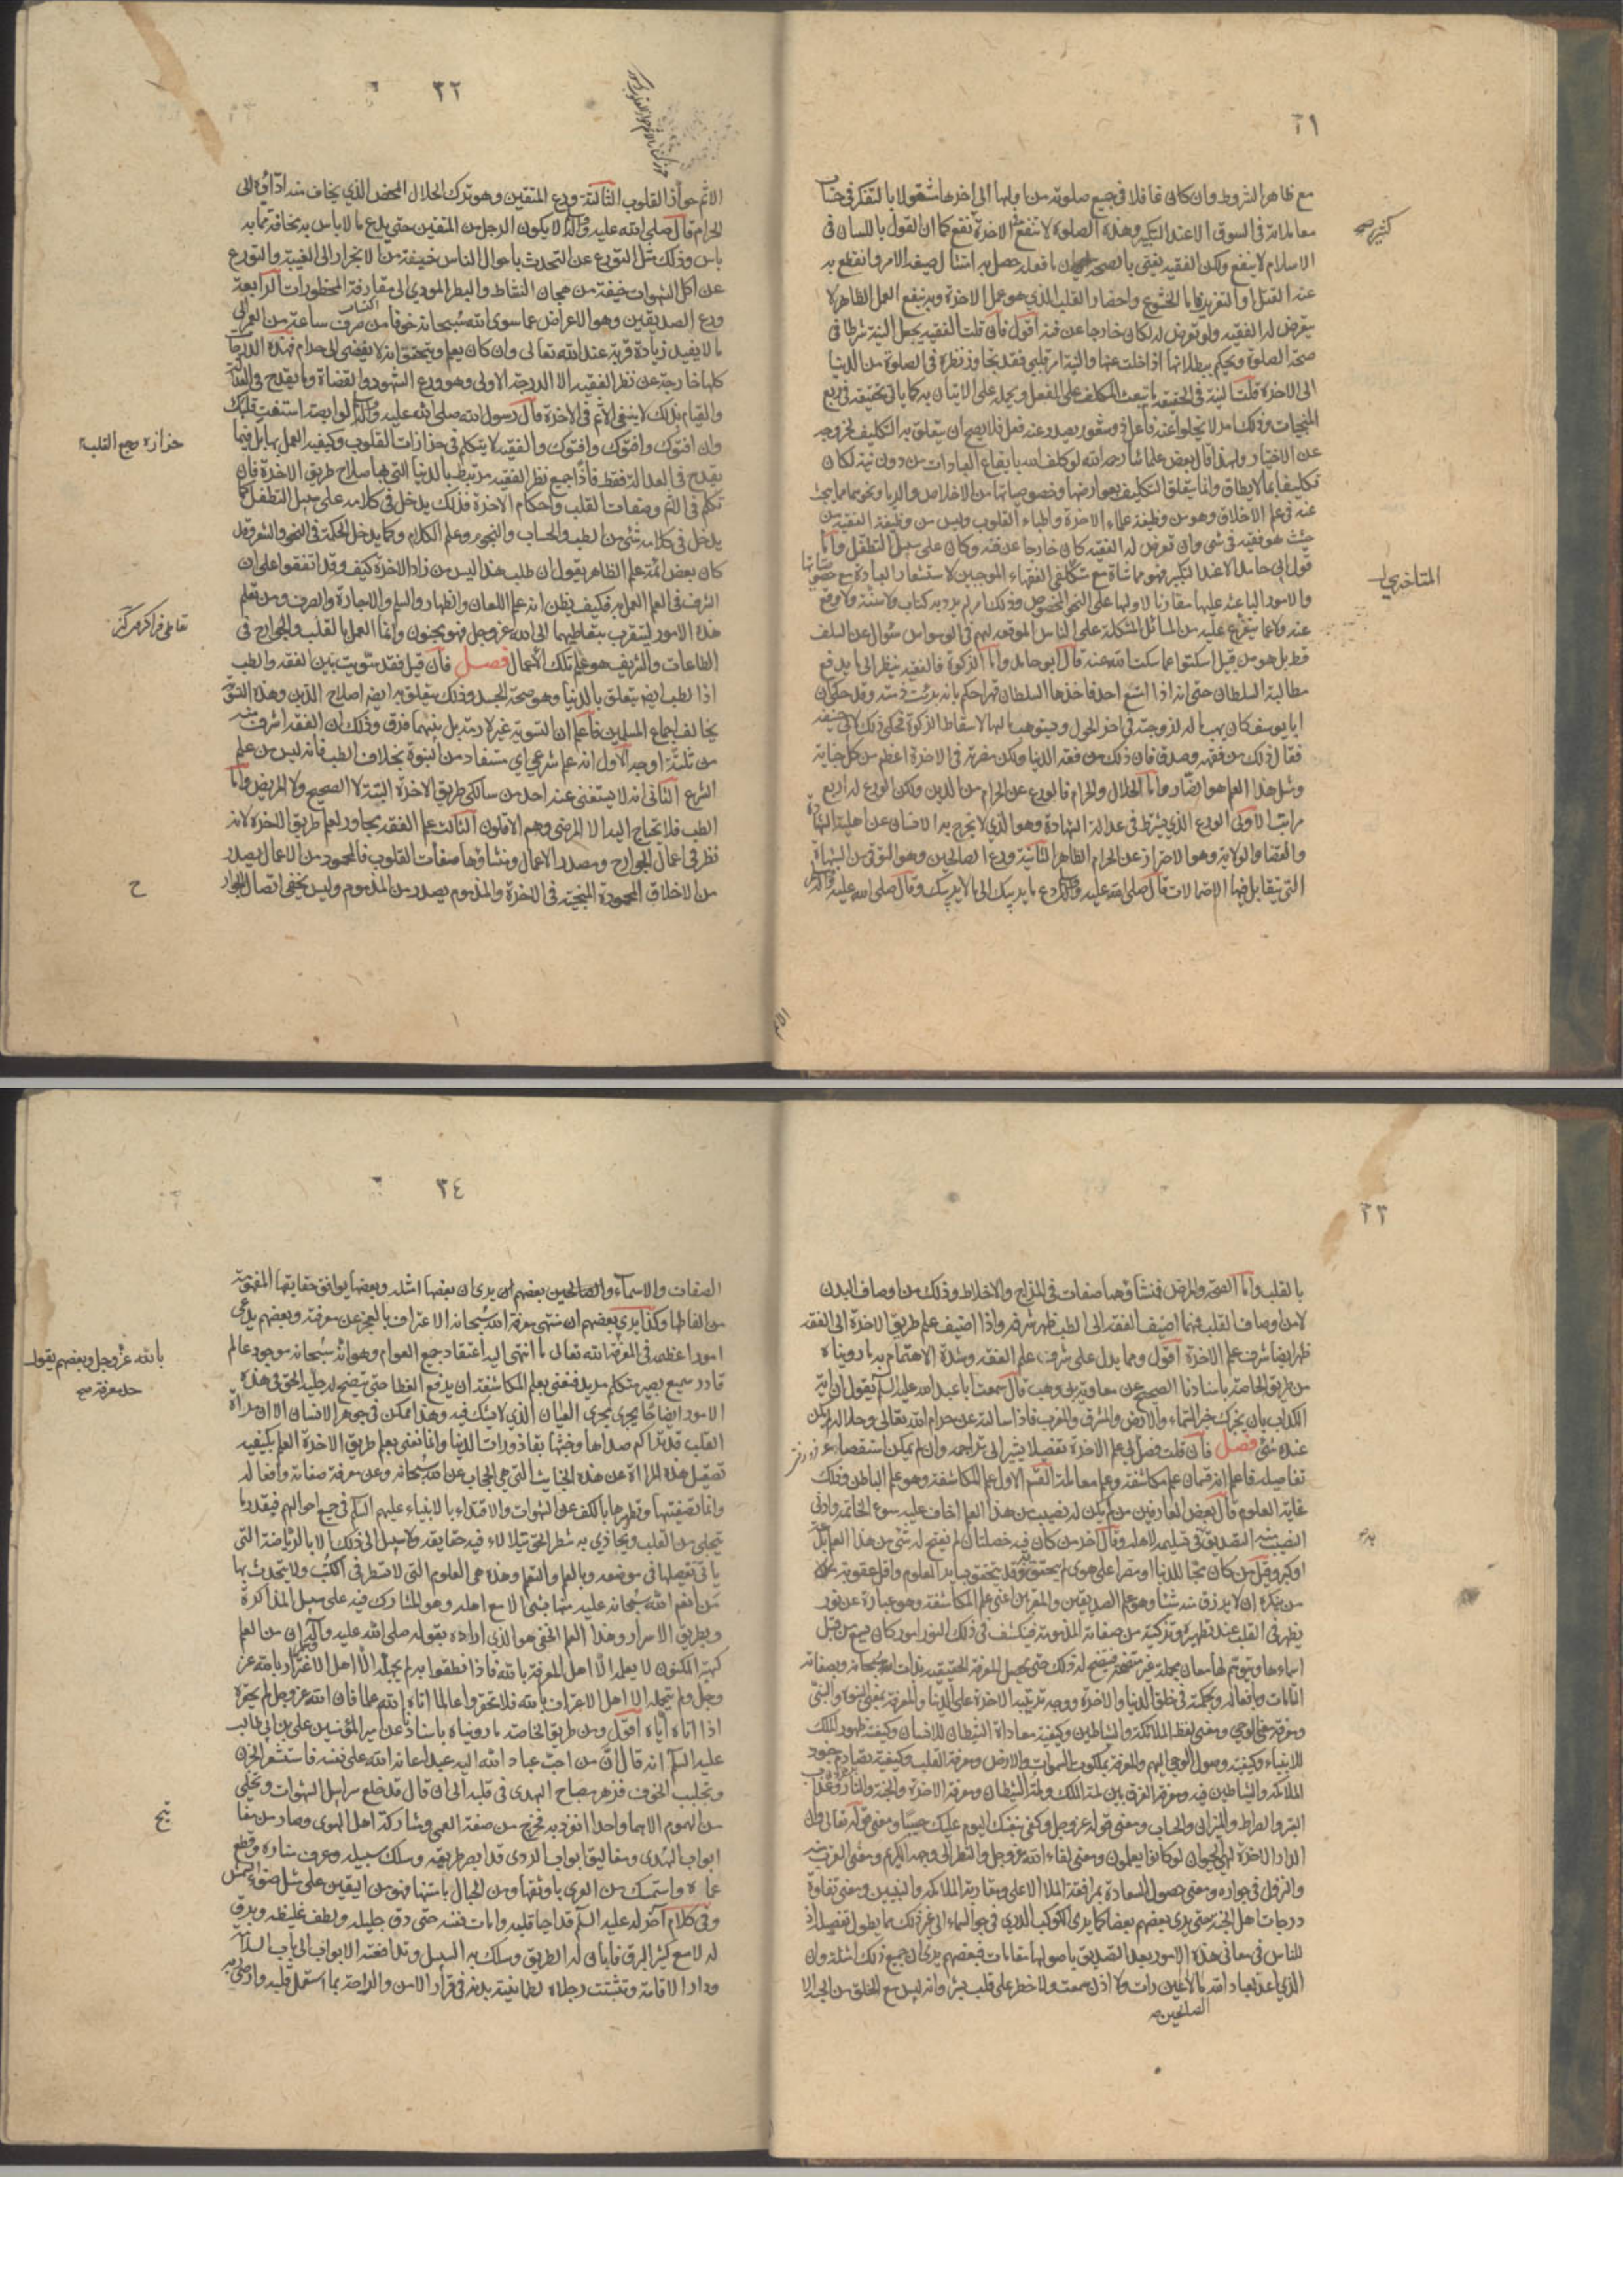 ٣١
مع ظاهر الشروط وان كان غافلا في جميع صلوته من اولها الى اخرها مشغولا بالتفكر في حساب
معاملاته في السوق الا عند التكبير وهذه الصلوة لا تنفع في الاخرة نفع كما ان القول باللسان في
الاسلام لا ينفع ولكن الفقيه يفتي بالصحة اي ان ما فعله حصل به امتثال صيغة الامر وانقطع به
عنه القتل او التعزير فاما الخشوع واحضار القلب الذي هو عمل الاخرة وبه ينفع العمل الظاهر لا
يتعرض له الفقيه ولو تعرض له لكان خارجا عن فنه اقول فان قلت الفقيه يجعل النية شرطا في
صحة الصلوة ويحكم ببطلانها اذا خلت عنها والنية امر قلبي فقد تجاوز نظره في الصلوة من الدنيا
الى الاخرة قلت النية في الحقيقة ما تبعث المكلف على الفعل ويحمله على الاتيان به كما ياتي تحقيقه في ربع
المنجيات وذلك امر لا يخلوا عنه فاعل ذو شعور يصدر عنه فعل فلا يصح ان يتعلق به التكليف لخروجه
عن الاختيار ولهذا قال بعض علمائنا رحمه الله لو كلف الله بايقاع العبادات من دون نية لكان
تكليفا بما لا يطاق وانما يتعلق التكليف بعوارضها وخصوصياتها من الاخلاص والريا ونحوهما مما يبحث
عنه في علم الاخلاق وهو من وظيفة علماء الاخرة واطباء القلوب وليس من وظيفة الفقيه من
حيث هو فقيه في شئ وان تعرض له الفقيه كان خارجا عن فنه وكان على سبيل التطفل واما
قول ابي حامد الا عند التكبير فهو مماشاة مع متكلفي الفقهاء الموجبين لاستشعار العبادة مع خصوصياتها
والامور الباعثة عليها مقارنا لاولها على النحو المخصوص وذلك امر لم يرد به كتاب ولا سنة ولا وقع
عنه ولا عما يتفرع عليه من المسائل المشكلة على الناس الموقعة لهم في الوسواس سؤال عن السلف
قط بل هو من قبيل اسكتوا عما سكت الله عنه قال ابو حامد واما الزكوة فالفقيه ينظر الى ما يدفع
مطالبة السلطان حتى انه اذا امتنع احد فاخذها السلطان قهرا حكم بانه برئت ذمته وقد حكي ان
ابا يوسف كان يهب ماله لزوجته في اخر الحول ويستوهب مالها لاسقاط الزكوة فحكي ذلك لابي حنيفة
فقال ذلك من فقهه وصدق فان ذلك من فقه الدنيا ولكن مضرته في الاخرة اعظم من كل جناية
ومثل هذا العلم هو الضار واما الحلال والحرام فالورع عن الحرام من الدين ولكن الورع له اربع
مراتب الاولى الورع الذي يشترط في عدالة الشهادة وهو الذي لا يخرج به الانسان عن اهلية الشهادة
والقضا والولاية وهو الاحتراز عن الحرام الظاهر الثانية ورع الصالحين وهو التوقي من الشبهات
التي يتقابل فيها الاحتمالات قال صلى الله عليه وآله دع ما يريبك الى ما لا يريبك وقال صلى الله عليه وآله
كثير صح
المتاخرين
الاثم
٣٢
الاثم حواز القلوب الثالثة ورع المتقين وهو ترك الحلال المحض الذي يخاف منه اداؤه الى
الحرام قال صلى الله عليه وآله لا يكون الرجل من المتقين حتى يدع ما لا باس به مخافة مما به
باس وذلك مثل التورع عن التحدث باحوال الناس خيفة من الانجرار الى الغيبة والتورع
عن اكل الشهوات خيفة من هيجان النشاط والبطر المودي الى مقارفة المحظورات الرابعة
ورع الصديقين وهو الاعراض عما سوى الله سبحانه خوفا من صرف ساعة من العمر الى
ما لا يفيد زيادة قربة عند الله تعالى وان كان يعلم ويتحقق انه لا يفضي الى حرام فهذه الدرجات
كلها خارجة عن نظر الفقيه الا الدرجة الاولى وهو ورع الشهود والقضاة وما يقدح في العدالة
والقيام بذلك لا ينفي الاثم في الاخرة قال رسول الله صلى الله عليه وآله لوابصة استفت قلبك
وان افتوك وافتوك وافتوك والفقيه لا يتكلم في حزازات القلوب وكيفية العمل بها بل فيما
يقدح في العدالة فقط فاذا جميع نظر الفقيه مرتبط بالدنيا التي بها صلاح طريق الاخرة فان
تكلم في الاثم وصفات القلب واحكام الاخرة فذلك يدخل في كلامه على سبيل التطفل كما
يدخل في كلامه شئ من الطب والحساب والنجوم وعلم الكلام وكما يدخل الحكمة في النحو والشعر وقد
كان بعض ائمة علم الظاهر يقول ان طلب هذا ليس من زاد الاخرة كيف وقد اتفقوا على ان
الشرف في العلم العمل به فكيف يظن انه علم اللعان والظهار والسلم والاجارة والصرف ومن تعلم
هذه الامور ليتقرب بتعاطيها الى الله عز وجل فهو مجنون وانما العمل بالقلب والجوارح في
الطاعات والشريف هو علم تلك الاعمال فصل فان قيل فقد سويت بين الفقه والطب
اذا الطب ايضا يتعلق بالدنيا وهو صحة الجسد وذلك يتعلق به ايضا صلاح الدين وهذه التسوية
يخالف اجماع المسلمين فاعلم ان التسوية غير لازمة بل بينهما فرق وذلك ان الفقه اشرف منه
من ثلثة اوجه الاول انه علم شرعي اي مستفاد من النبوة بخلاف الطب فانه ليس من علم
الشرع الثاني انه لا يستغني عنه احد من سالكي طريق الاخرة البتة لا الصحيح ولا المريض واما
الطب فلا تحتاج اليه الا المرضى وهم الاقلون الثالث علم الفقه مجاور لعلم طريق الاخرة لانه
نظر في اعمال الجوارح ومصدر الاعمال ومنشاؤها صفات القلوب فالمحمود من الاعمال يصدر
من الاخلاق المحمودة المنجية في الاخرة والمذموم يصدر من المذموم وليس يخفى اتصال الجوارح
حزازه وجع القلب
ح
٣٣
بالقلب واما الصحة والمرض فمنشاؤهما صفات في المزاج والاخلاط وذلك من اوصاف البدن
لا من اوصاف القلب فمهما اضيف الفقه الى الطب ظهر شرفه واذا اضيف علم طريق الاخرة الى الفقه
ظهر ايضا شرف علم الاخرة اقول ومما يدل على شرف علم الفقه وشدة الاهتمام به ما رويناه
من طريق الخاصة باسنادنا الصحيح عن معاوية بن وهب قال سمعت ابا عبد الله عليه السلم يقول ان اية
الكذاب بان يخبرك خبر السماء والارض والمشرق والمغرب فاذا سالته عن حرام الله تعالى وحلاله لم يكن
عنده شئ فصل فان قلت فصل لي علم الاخرة تفصيلا يشير الى تراجمه وان لم يمكن استقصاء
تفاصيله فاعلم انه قسمان علم مكاشفة وعلم معاملة القسم الاول علم المكاشفة وهو علم الباطن وذلك
غاية العلوم قال بعض العارفين من لم يكن له نصيب من هذا العلم اخاف عليه سوء الخاتمة وادنى
النصيب منه التصديق به وتسليمه لاهله وقال اخر من كان فيه خصلتان لم يفتح له شئ من هذا العلم بدعة
او كبر وقيل من كان محبا للدنيا او مصرا على هوى لم يتحقق به وقد يتحقق بساير العلوم واقل عقوبة
من ينكره ان لا يرزق منه شيئا وهو علم الصديقين والمقربين اعني علم المكاشفة وهو عبارة عن نور
يظهر في القلب عند تطهيره وتزكيته من صفاته المذمومة فينكشف في ذلك النور امور كان يسمع من قبل
اسماءها ويتوهم لها معان مجملة غير متضحة فيتضح له ذلك حتى يحصل المعرفة الحقيقية بذات الله سبحانه وبصفاته
التامات وبافعاله وبحكمته في خلق الدنيا والاخرة ووجه ترتيبه الاخرة على الدنيا والمعرفة بمعنى النبوة والنبي
ومعرفة معنى الوحي ومعنى لفظ الملائكة والشياطين وكيفية معاداة الشيطان للانسان وكيفية ظهور الملك
للانبياء وكيفية وصول الوحي اليهم والمعرفة بملكوت السموات والارض ومعرفة القلب وكيفية تصادم جنود
الملائكة والشياطين فيه ومعرفة الفرق بين لمة الملك ولمة الشيطان ومعرفة الاخرة والجنة والنار وعذاب
القبر والصراط والميزان والحساب ومعنى قوله عز وجل وكفى بنفسك اليوم عليك حسيبا ومعنى قوله تعالى وان
الدار الاخرة لهي الحيوان لو كانوا يعلمون ومعنى لقاء الله عز وجل والنظر الى وجهه الكريم ومعنى القرب منه
والنزول في جواره ومعنى حصول السعادة بمرافقة الملا الاعلى ومقارنة الملائكة والنبيين ومعنى تفاوت
درجات اهل الجنة حتى يرى بعضهم بعضا كما يرى الكوكب الدري في جو السماء الى غير ذلك مما يطول تفصيله اذ
للناس في معاني هذه الامور بعد التصديق باصولها مقامات فبعضهم يرى ان جميع ذلك امثلة وان
الذي اعد لعباد الله ما لا عين رات ولا اذن سمعت ولا خطر على قلب بشر وانه ليس مع الخلق من الجنة الا
الصالحين صح
٣٤
الصفات والاسماء والصالحين بعضهم ان يرى ان بعضها امثلة وبعضها يوافق حقايقها المفهومة
من الفاظها وكذا يرى بعضهم ان منتهى معرفة الله سبحانه الاعتراف بالعجز عن معرفته وبعضهم يدعي
امورا عظيمة في المعرفة الله تعالى ما انتهى اليه اعتقاد جميع العوام وهو انه سبحانه موجود عالم
قادر سميع بصير متكلم مريد فنعني بعلم المكاشفة ان يرتفع الغطا حتى يتضح له جلية الحق في هذه
الامور ايضاحا يجري مجرى العيان الذي لا شك فيه وهذا ممكن في جوهر الانسان الا ان مراة
القلب قد تراكم صداها وخبثها بقاذورات الدنيا وانما نعني بعلم طريق الاخرة العلم بكيفية
تصقيل هذه المراة عن هذه الخبايث التي هي الحجاب عن الله سبحانه وعن معرفة صفاته وافعاله
وانما تصفيتها وتطهيرها بالكف عن الشهوات والاقتداء بالانبياء عليهم السلم في جميع احوالهم فبقدر ما
يتجلى من القلب ويحاذي به شطر الحق يتلالاء فيه حقايقه ولا سبيل الى ذلك الا بالرياضة التي
ياتي تفصيلها في موضعه وبالعلم والتعلم وهذه هي العلوم التي لا تسطر في الكتب ولا يتحدث بها
من انعم الله سبحانه عليه منها بشئ الا مع اهله وهو المشارك فيه على سبيل المذاكرة
وبطريق الاسرار وهذا العلم الخفي هو الذي اراده بقوله صلى الله عليه وآله ان من العلم
كهيئة المكنون لا يعلمه الا اهل المعرفة بالله فاذا نطقوا به لم يجهله الا اهل الاغترار بالله عز
وجل ولم يتحمله الا اهل الاعتراف بالله فلا تحقروا عالما اتاه الله علما فان الله عز وجل لم يحقره
اذا اتاه اياه اقول ومن طريق الخاصة ما رويناه باسناد عن امير المؤمنين علي بن ابي طالب
عليه السلم انه قال ان من احب عباد الله اليه عبدا اعانه الله على نفسه فاستشعر الحزن
وتجلبب الخوف فزهر مصباح الهدى في قلبه الى ان قال قد خلع سرابيل الشهوات وتخلى
من الهموم الا هما واحدا انفرد به فخرج من صفة العمى ومشاركة اهل الهوى وصار من مفاتيح
ابواب الهدى ومغاليق ابواب الردى قد ابصر طريقه وسلك سبيله وعرف مناره وقطع
غماره واستمسك من العرى باوثقها ومن الحبال بامتنها فهو من اليقين على مثل ضوء الشمس
وفي كلام اخر له عليه السلم قد احيا قلبه وامات نفسه حتى دق جليله ولطف غليظه وبرق
له لامع كثير البرق فابان له الطريق وسلك به السبيل وتدافعته الابواب الى باب السلامة
ودار الاقامة وتثبتت رجلاه لطمانينة بدنه في قرار الامن والراحة بما استعمل قلبه وارضى ربه
بالله عز وجل وبعضهم يقول
حد معرفة صح